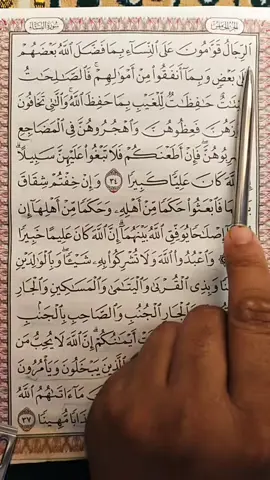 سورة النساء
الرجال قوامون على النساء بما فضل الله بعضهم
بعض وبما أنفقوا من أموالهم فالصالحات
حافظات للغيب بما حفظ الله والتي تخافون
فعظوهن واهجروهن في المضاجع
فإن أطعنكم فلا تبغوا عليهن سبيلا
كان عليا كبيرا ٣٤ وإن خفتم شقاق
فابعثوا حكما من أهله وحكما من أهلها إن
يوفق الله بينهما إن الله كان عليما خبيرا
واعبدوا الله ولا تشركوا به شيئا وبالوالدين
وبذي القربى واليتامى والمساكين والجار
والجار الجنب والصاحب بالجنب
أيمانكم إن الله لا يحب من
الذين يبخلون ويأمرون
ما آتاهم الله
مهينا ٣٧